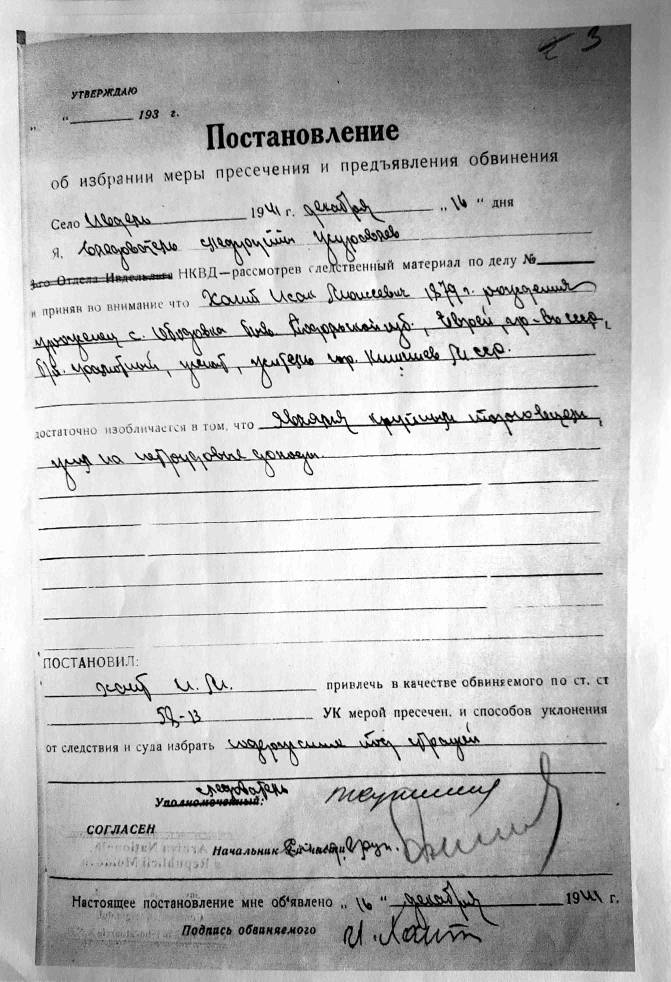 3
УТВЕРЖДАЮ
" "_______ 193 г.
Постановление
об избрании меры пресечения и предъявления обвинения
Село Ивдель 1941 г. декабря „ 16 " дня
Я, Следователь следгруппы
3-го Отдела Ивдельлага НКВД—рассмотрев следственный материал по делу №
и приняв во внимание что Хаит Исак Моисеевич 1879 г. рождения
уроженец с. Ободовка быв. Подольской губ., Еврей, гр-н ссср,
б/п. грамотный, женат, житель гор. Кишинев М сср.
достаточно изобличается в том, что Являлся крупным торговцем,
жил на нетрудовые доходы.
ПОСТАНОВИЛ:
Хаит И. М. привлечь в качестве обвиняемого по ст. ст
58-13 УК мерой пресечен. и способов уклонения
от следствия и суда избрать содержание под стражей
следователь
Уполномоченный:
СОГЛАСЕН
Начальник груп.
Настоящее постановление мне об'явлено „ 16 " декабря 1941 г.
Подпись обвиняемого И. Хаит